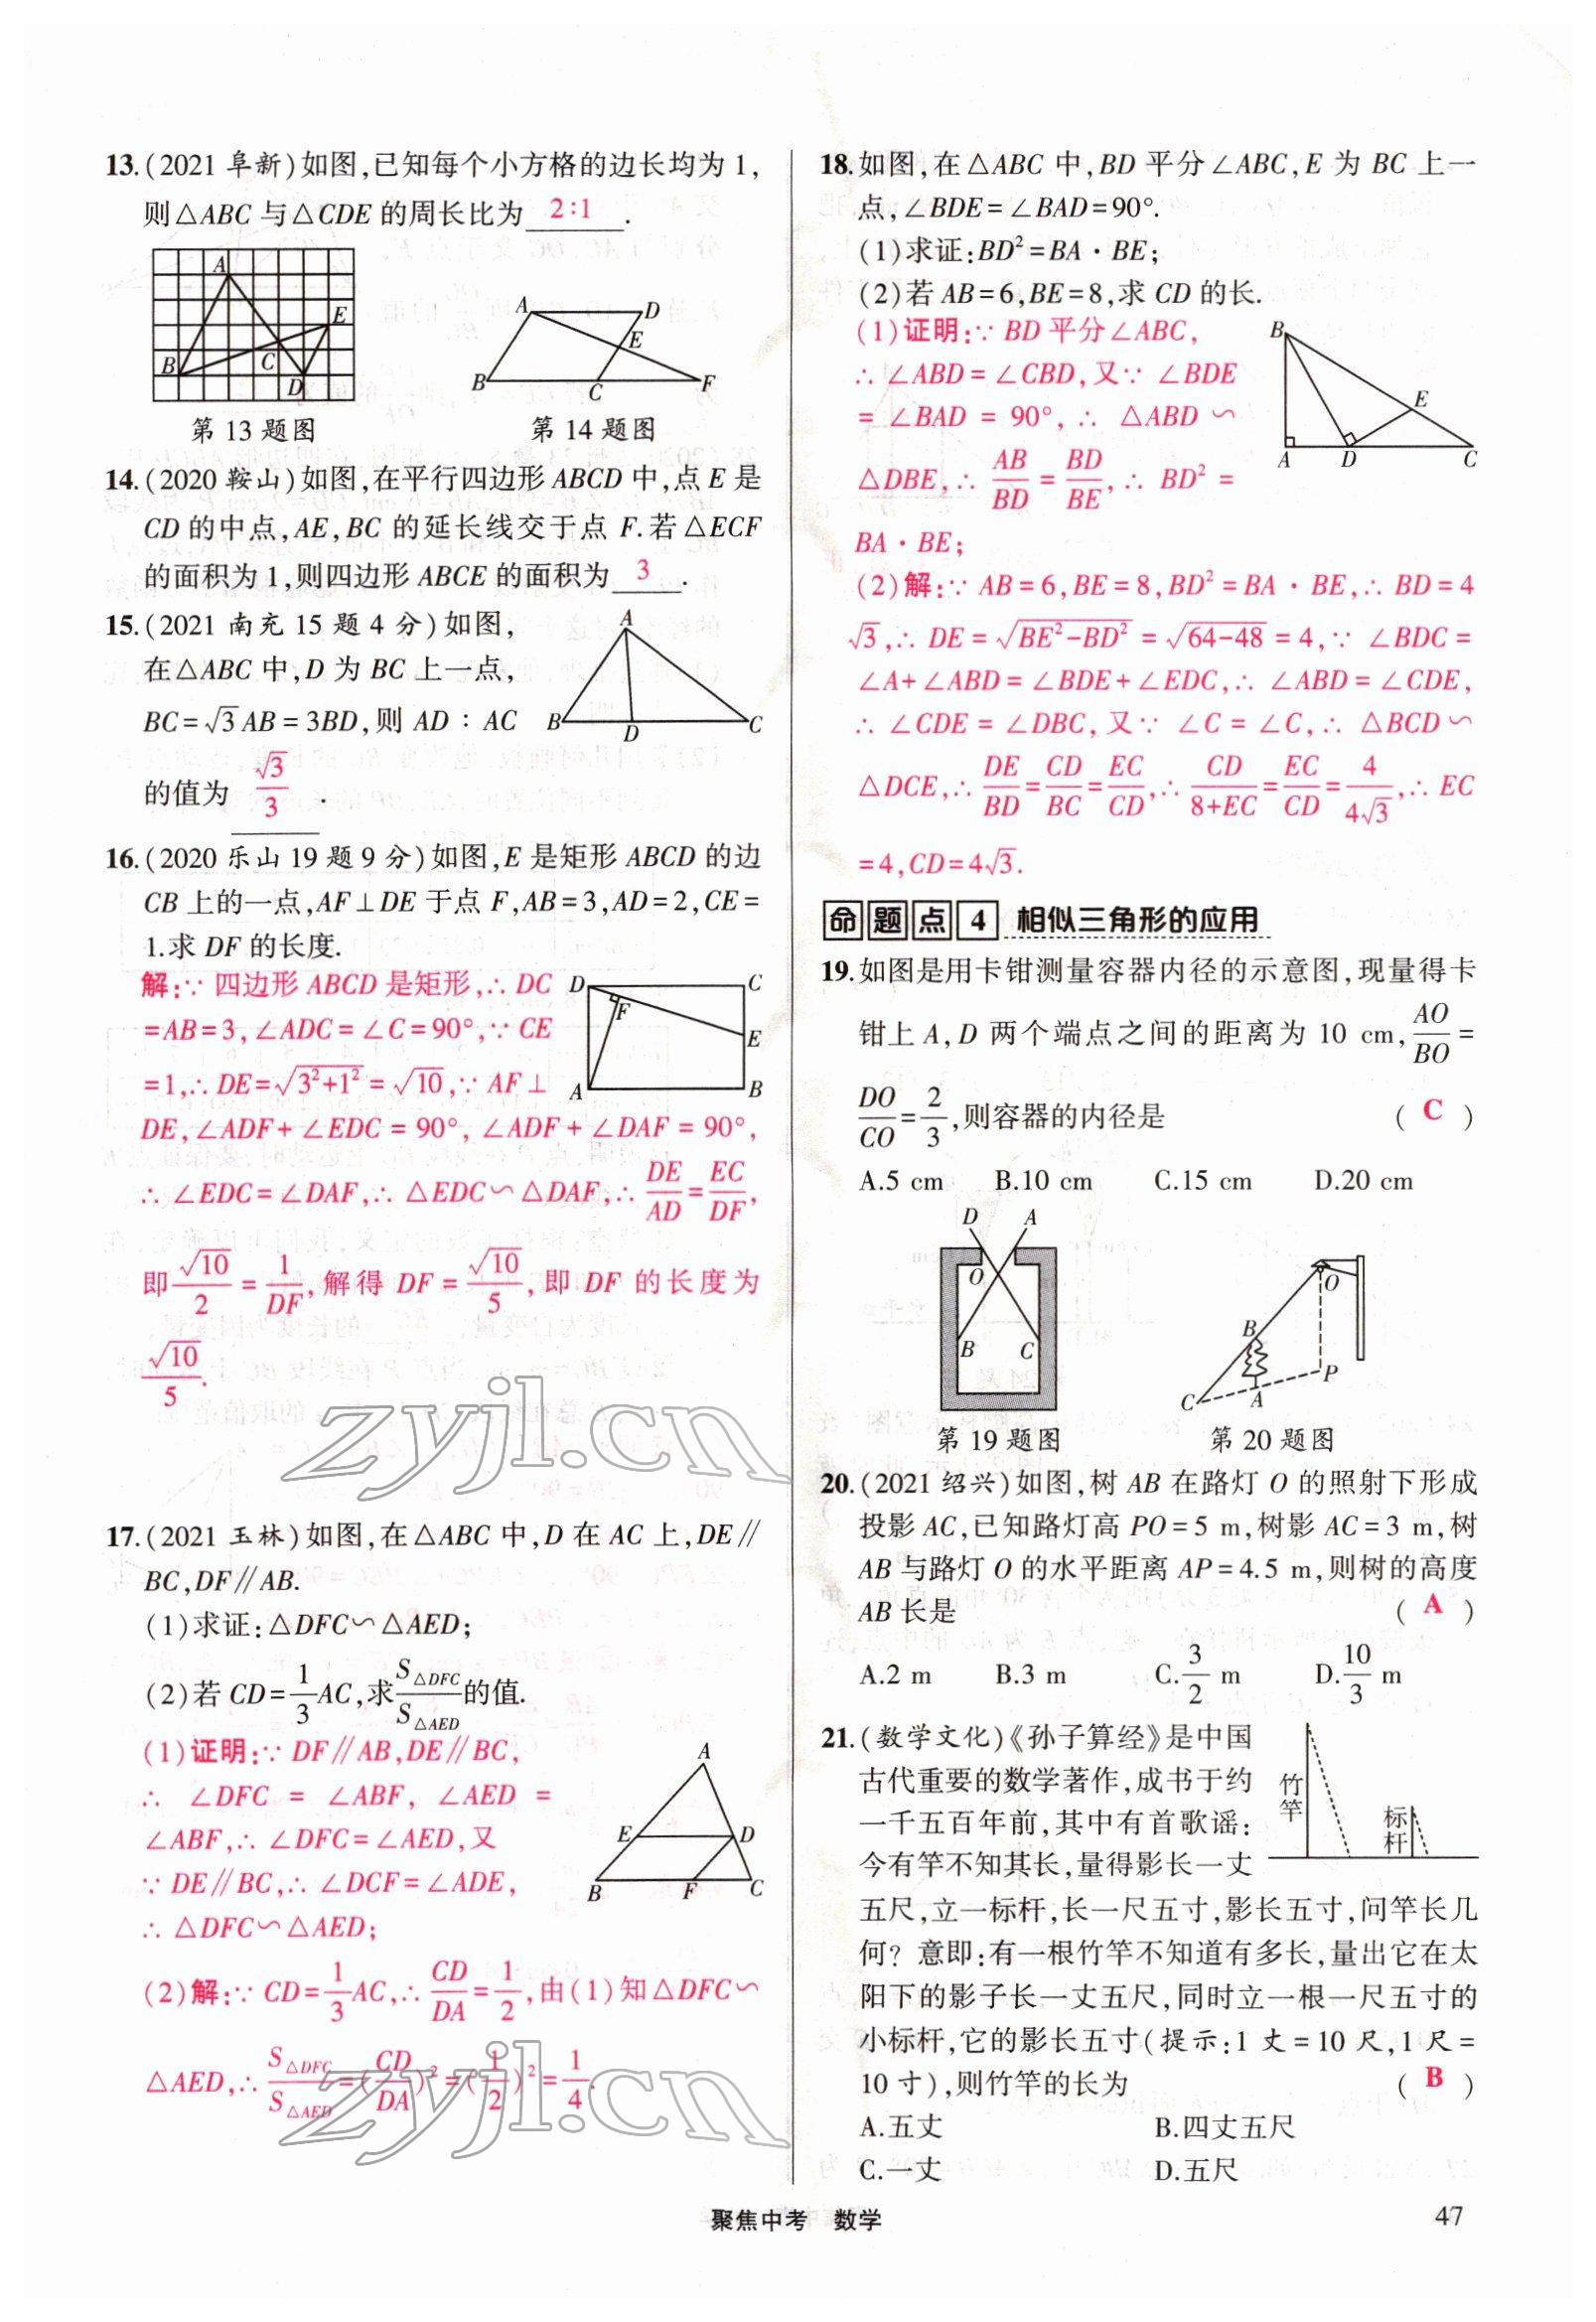 13.(2021 阜新)如图,已知每个小方格的边长均为 1,
则△ABC 与△CDE 的周长比为 2∶1 .
A
B
C
D
E
A
D
E
B
C
F
第 13 题图
第 14 题图
14.(2020 鞍山)如图,在平行四边形 ABCD 中,点 E 是
CD 的中点,AE,BC 的延长线交于点 F.若△ECF
的面积为 1,则四边形 ABCE 的面积为 3 .
15.(2021 南充 15 题 4 分)如图,
在△ABC 中,D 为 BC 上一点,
BC=√3 AB=3BD,则 AD ∶ AC
的值为 √3/3 .
A
B
D
C
16.(2020 乐山 19 题 9 分)如图,E 是矩形 ABCD 的边
CB 上的一点,AF⊥DE 于点 F,AB=3,AD=2,CE=
1.求 DF 的长度.
解:∵ 四边形 ABCD 是矩形,∴ DC
=AB=3,∠ADC=∠C=90°,∵ CE
=1,∴ DE=√(3²+1²)=√10,∵ AF⊥
DE,∠ADF+∠EDC=90°,∠ADF+∠DAF=90°,
∴ ∠EDC=∠DAF,∴ △EDC∽△DAF,∴ DE/AD=EC/DF,
即 √10/2=1/DF,解得 DF=√10/5,即 DF 的长度为
√10/5.
D
C
F
E
A
B
17.(2021 玉林)如图,在△ABC 中,D 在 AC 上,DE∥
BC,DF∥AB.
(1)求证:△DFC∽△AED;
(2)若 CD=1/3 AC,求 S△DFC/S△AED 的值.
(1)证明:∵ DF∥AB,DE∥BC,
∴ ∠DFC = ∠ABF, ∠AED =
∠ABF,∴ ∠DFC=∠AED,又
∵ DE∥BC,∴ ∠DCF=∠ADE,
∴ △DFC∽△AED;
(2)解:∵ CD=1/3 AC,∴ CD/DA=1/2,由(1)知△DFC∽
△AED,∴ S△DFC/S△AED=(CD/DA)²=(1/2)²=1/4.
A
E
D
B
F
C
18.如图,在△ABC 中,BD 平分∠ABC,E 为 BC 上一
点,∠BDE=∠BAD=90°.
(1)求证:BD²=BA·BE;
(2)若 AB=6,BE=8,求 CD 的长.
(1)证明:∵ BD 平分∠ABC,
∴ ∠ABD=∠CBD,又∵ ∠BDE
=∠BAD = 90°, ∴ △ABD∽
△DBE,∴ AB/BD=BD/BE,∴ BD²=
BA·BE;
B
E
A
D
C
(2)解:∵ AB=6,BE=8,BD²=BA·BE,∴ BD=4
√3,∴ DE=√(BE²-BD²)=√(64-48)=4,∵ ∠BDC=
∠A+∠ABD=∠BDE+∠EDC,∴ ∠ABD=∠CDE,
∴ ∠CDE=∠DBC,又∵ ∠C=∠C,∴ △BCD∽
△DCE,∴ DE/BD=CD/BC=EC/CD,∴ CD/(8+EC)=EC/CD=4/(4√3),∴ EC
=4,CD=4√3.
命题点 4 相似三角形的应用
19.如图是用卡钳测量容器内径的示意图,现量得卡
钳上 A,D 两个端点之间的距离为 10 cm,AO/BO=
DO/CO=2/3,则容器的内径是 ( C )
A.5 cm B.10 cm C.15 cm D.20 cm
D
A
O
B
C
O
B
P
C
A
第 19 题图
第 20 题图
20.(2021 绍兴)如图,树 AB 在路灯 O 的照射下形成
投影 AC,已知路灯高 PO=5 m,树影 AC=3 m,树
AB 与路灯 O 的水平距离 AP=4.5 m,则树的高度
AB 长是 ( A )
A.2 m B.3 m C.3/2 m D.10/3 m
21.(数学文化)《孙子算经》是中国
古代重要的数学著作,成书于约
一千五百年前,其中有首歌谣:
今有竿不知其长,量得影长一丈
五尺,立一标杆,长一尺五寸,影长五寸,问竿长几
何? 意即:有一根竹竿不知道有多长,量出它在太
阳下的影子长一丈五尺,同时立一根一尺五寸的
小标杆,它的影长五寸(提示:1 丈=10 尺,1 尺=
10 寸),则竹竿的长为 ( B )
竹竿
标杆
A.五丈 B.四丈五尺
C.一丈 D.五尺
聚焦中考 数学
47
zyjl.cn
zyjl.cn